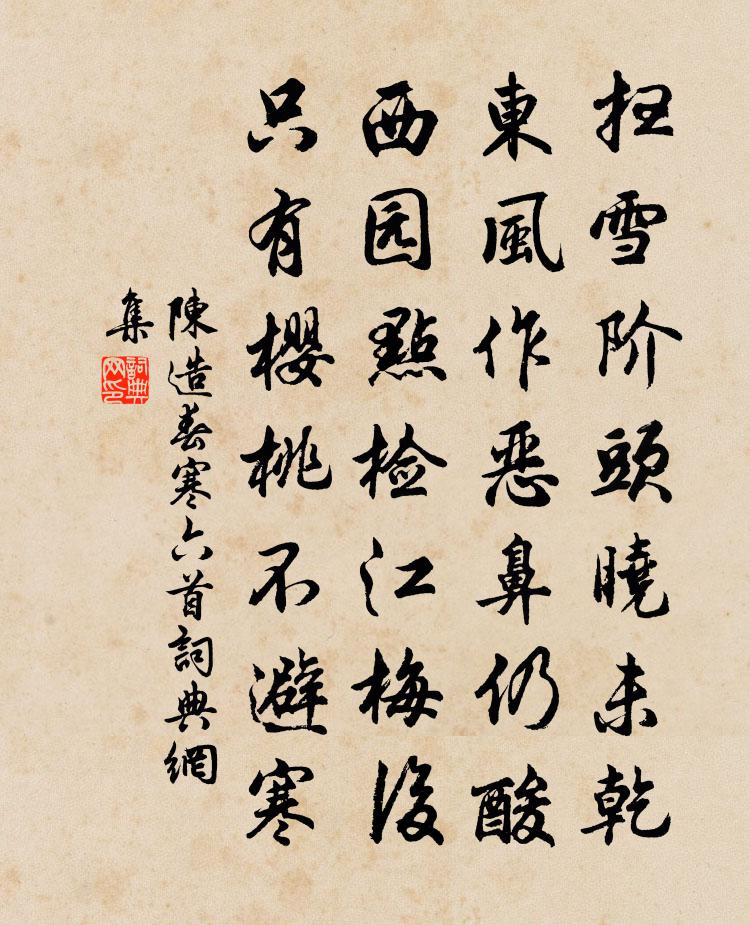 扫雪阶頭曉未乾
東風作恶鼻仍酸
西园點检江梅後
只有櫻桃不避寒
陳造春寒六首詞典網
集
詞典
网印